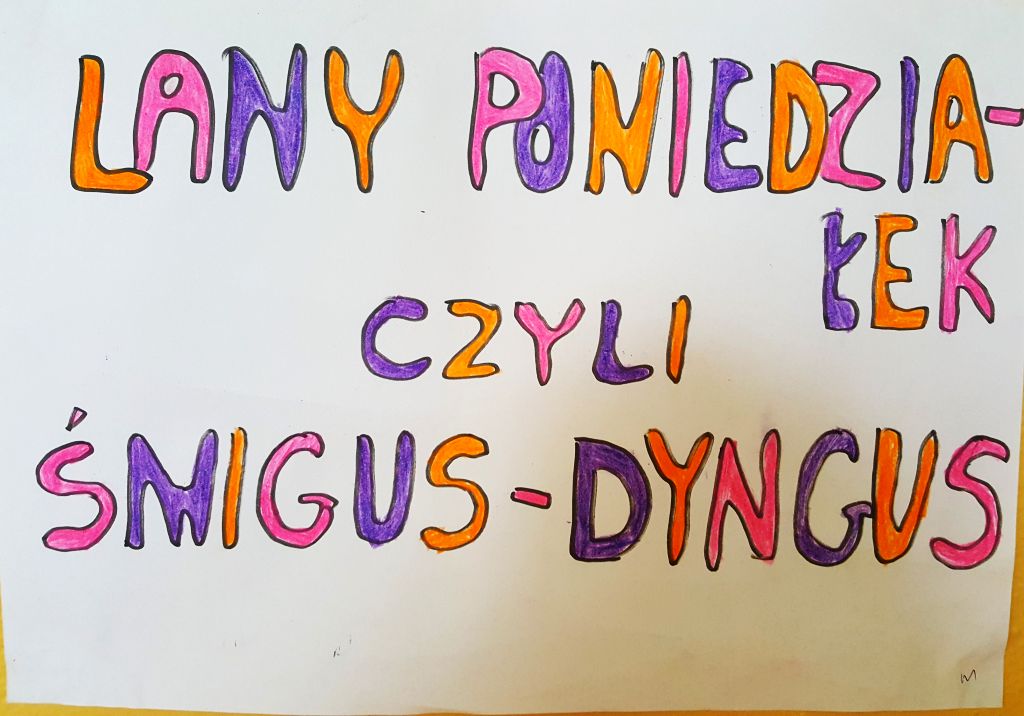 LANY PONIEDZIA-
ŁEK
CZYLI
ŚMIGUS-DYNGUS